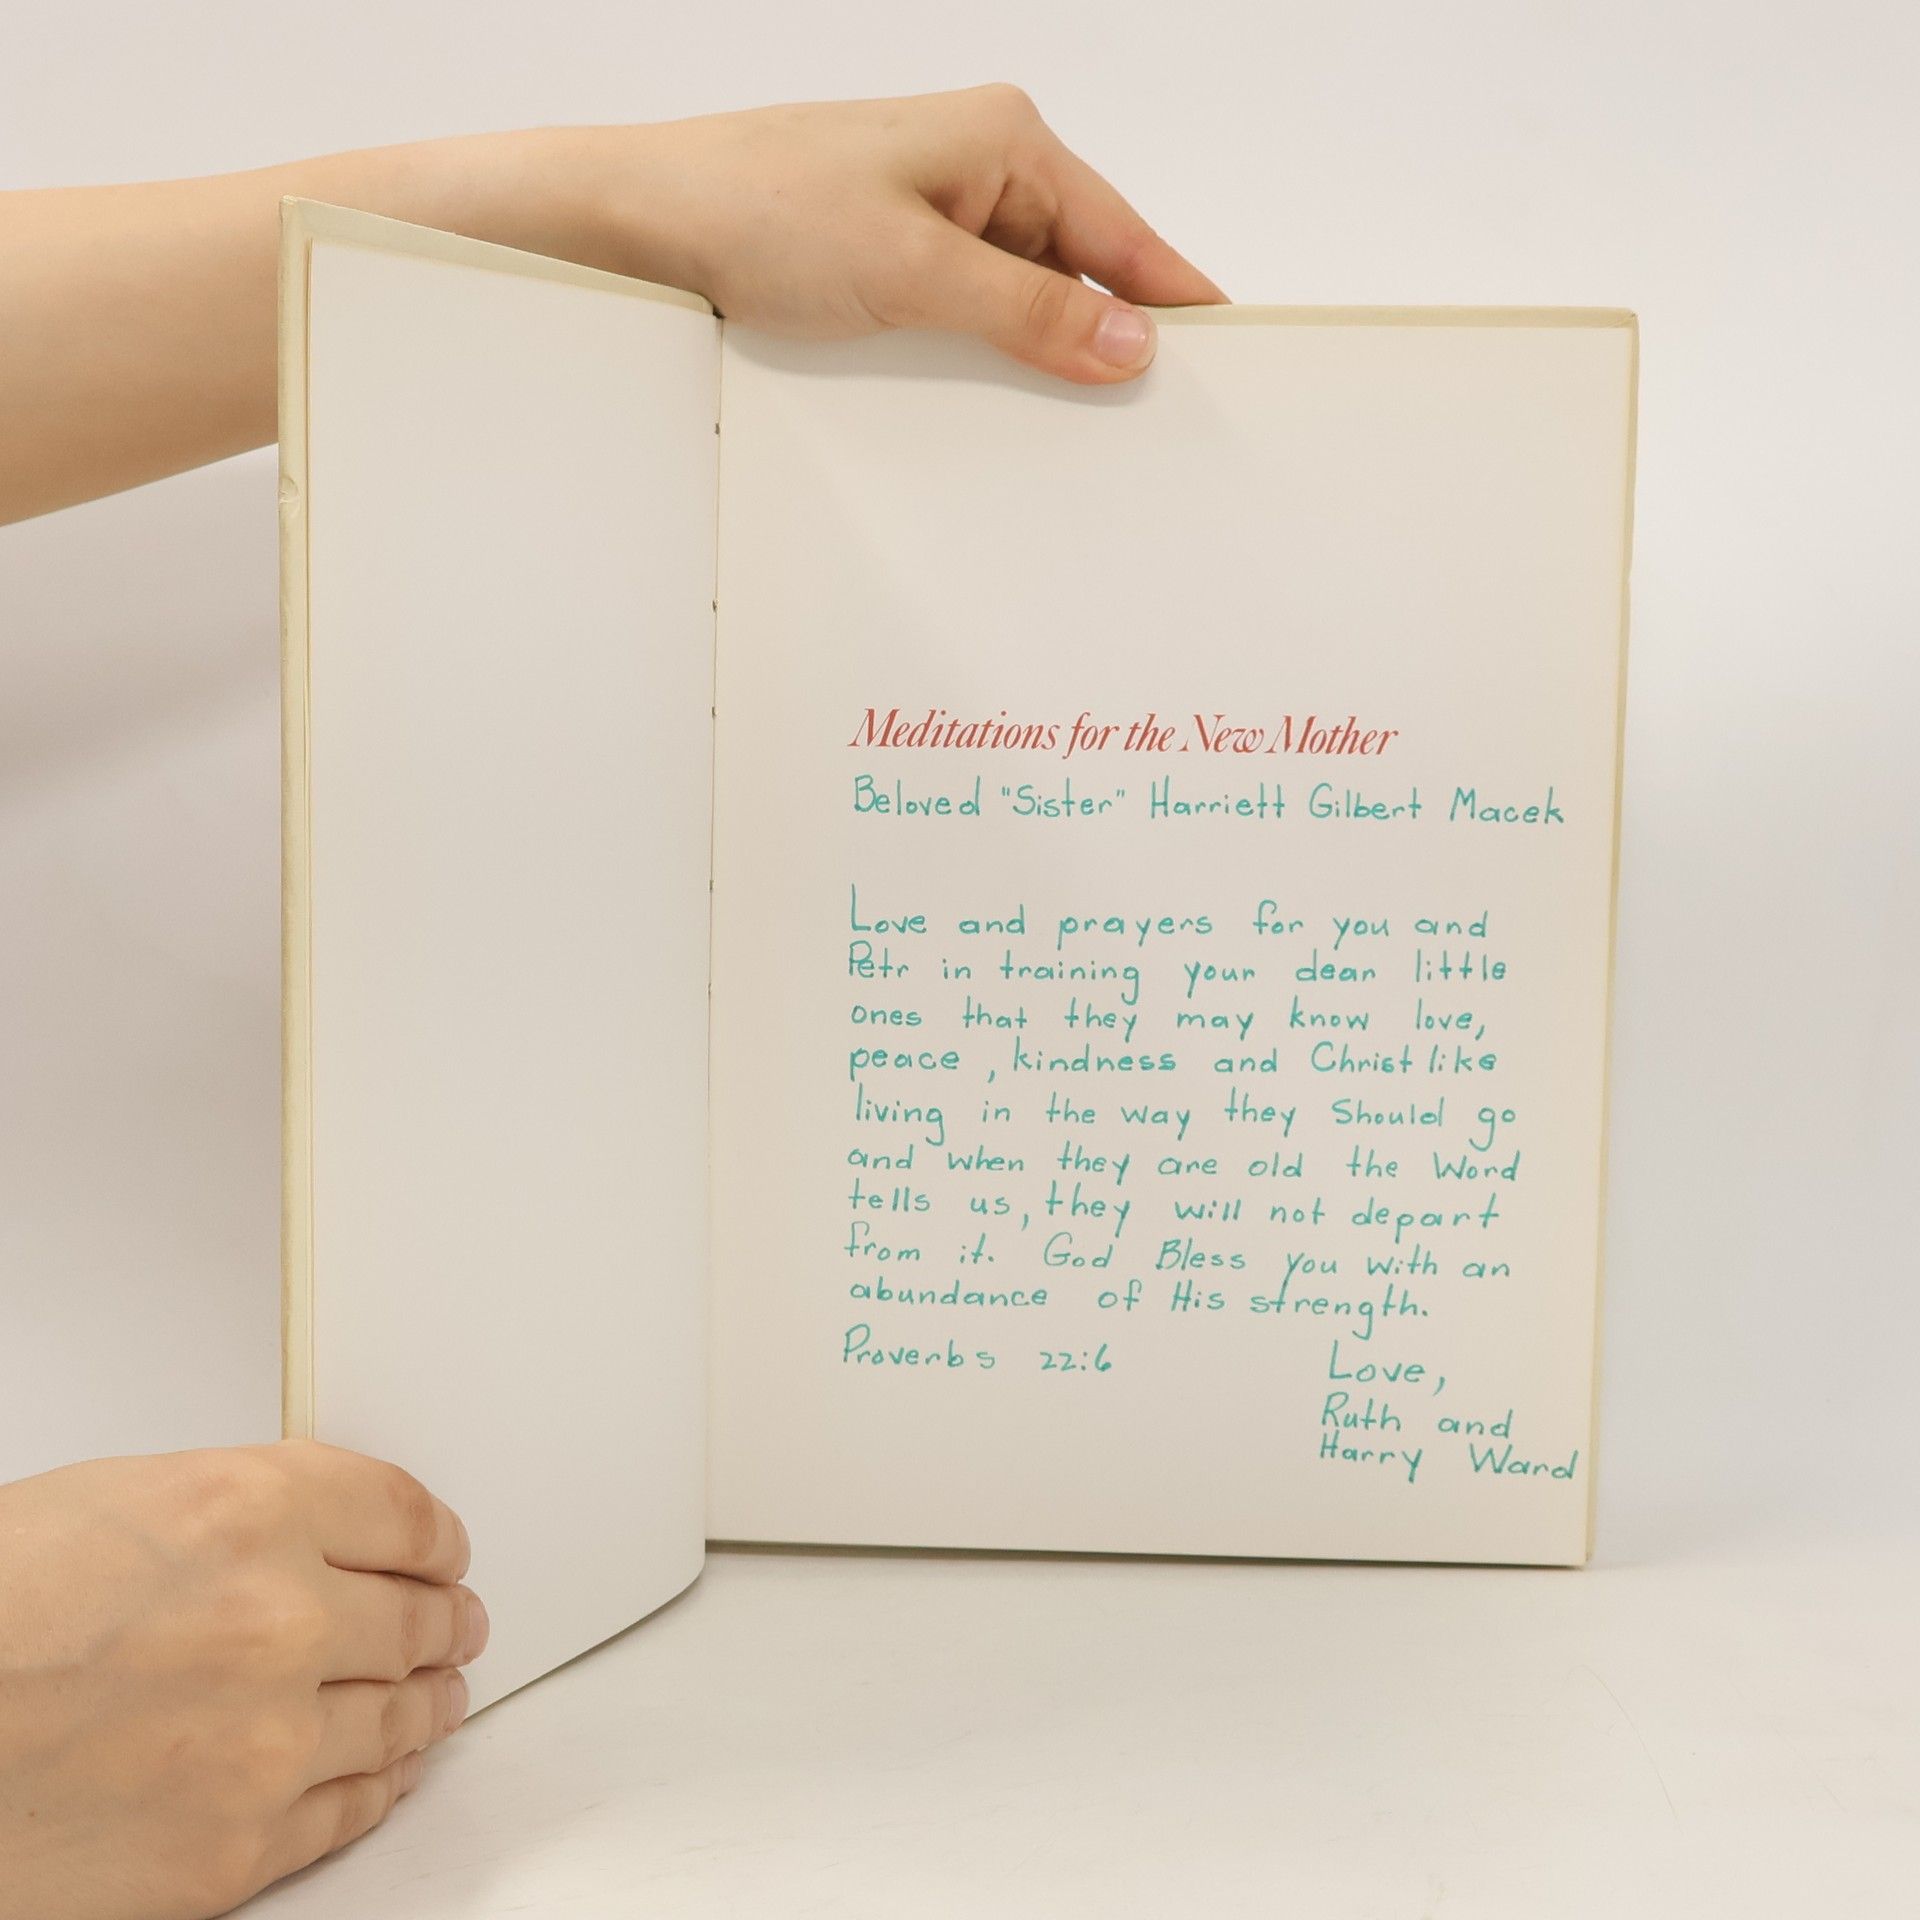 Meditations for the New Mother
Beloved "Sister" Harriett Gilbert Macek
Love and prayers for you and
Petr in training your dear little
ones that they may know love,
peace, kindness and Christ like
living in the way they Should go
and when they are old the Word
tells us, they will not depart
from it. God Bless you with an
abundance of His strength.
Proverbs 22:6
Love,
Ruth and
Harry Ward